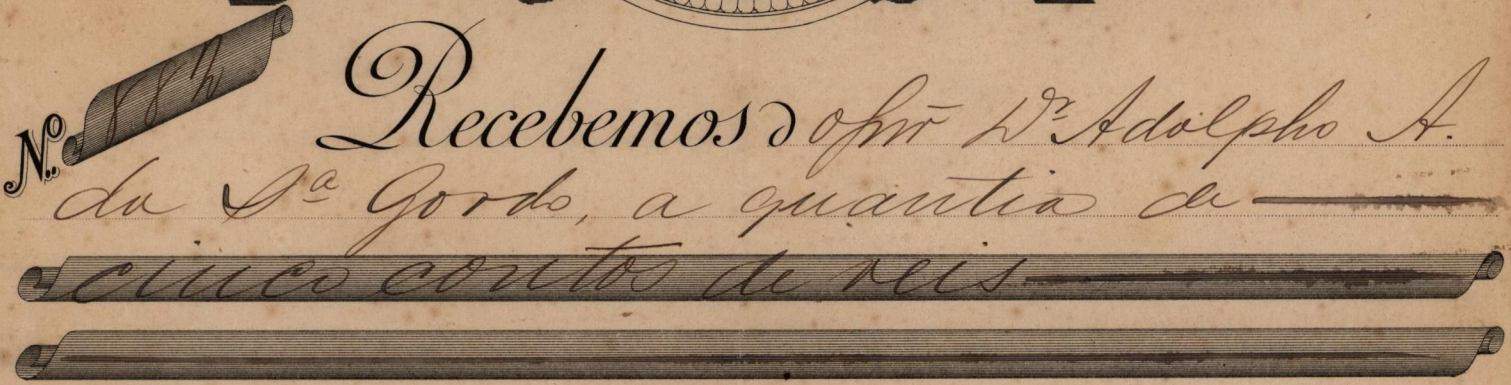 Nº 882
Recebemos do Snr Dr Adolpho A.
da Sª Gordo, a quantia de
cinco contos de reis